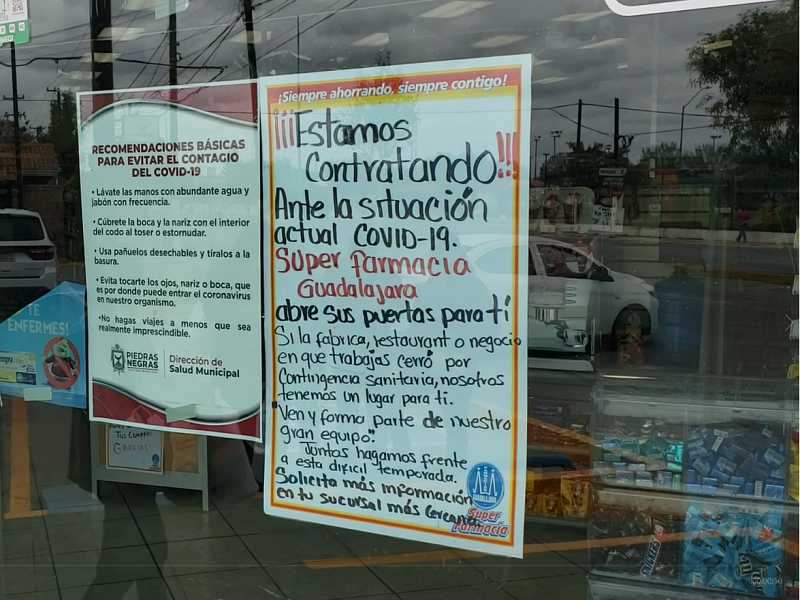 RECOMENDACIONES BÁSICAS
PARA EVITAR EL CONTAGIO
DEL COVID-19
• Lávate las manos con abundante agua y
jabón con frecuencia.
• Cúbrete la boca y la nariz con el interior
del codo al toser o estornudar.
• Usa pañuelos desechables y tíralos a la
basura.
• Evita tocarte los ojos, nariz o boca, que
es por donde puede entrar el coronavirus
en nuestro organismo.
•No hagas viajes a menos que sea
realmente imprescindible.
PIEDRAS
NEGRAS
Dirección de
Salud Municipal
¡Siempre ahorrando, siempre contigo!
¡¡¡Estamos
Contratando!!!
Ante la situación
actual COVID-19.
Super Farmacia
Guadalajara
abre sus puertas para tí
Si la fabrica, restaurant o negocio
en que trabajas cerró por
Contingencia sanitaria, nosotros
tenemos un lugar para ti.
"Ven y forma parte de nuestro
gran equipo".
Juntos hagamos frente
a esta dificil temporada.
Solicita más información
en tu sucursal más cercana.
Super
Farmacia
TE
ENFERMES!
TUS COMPRAS
GRACIAS